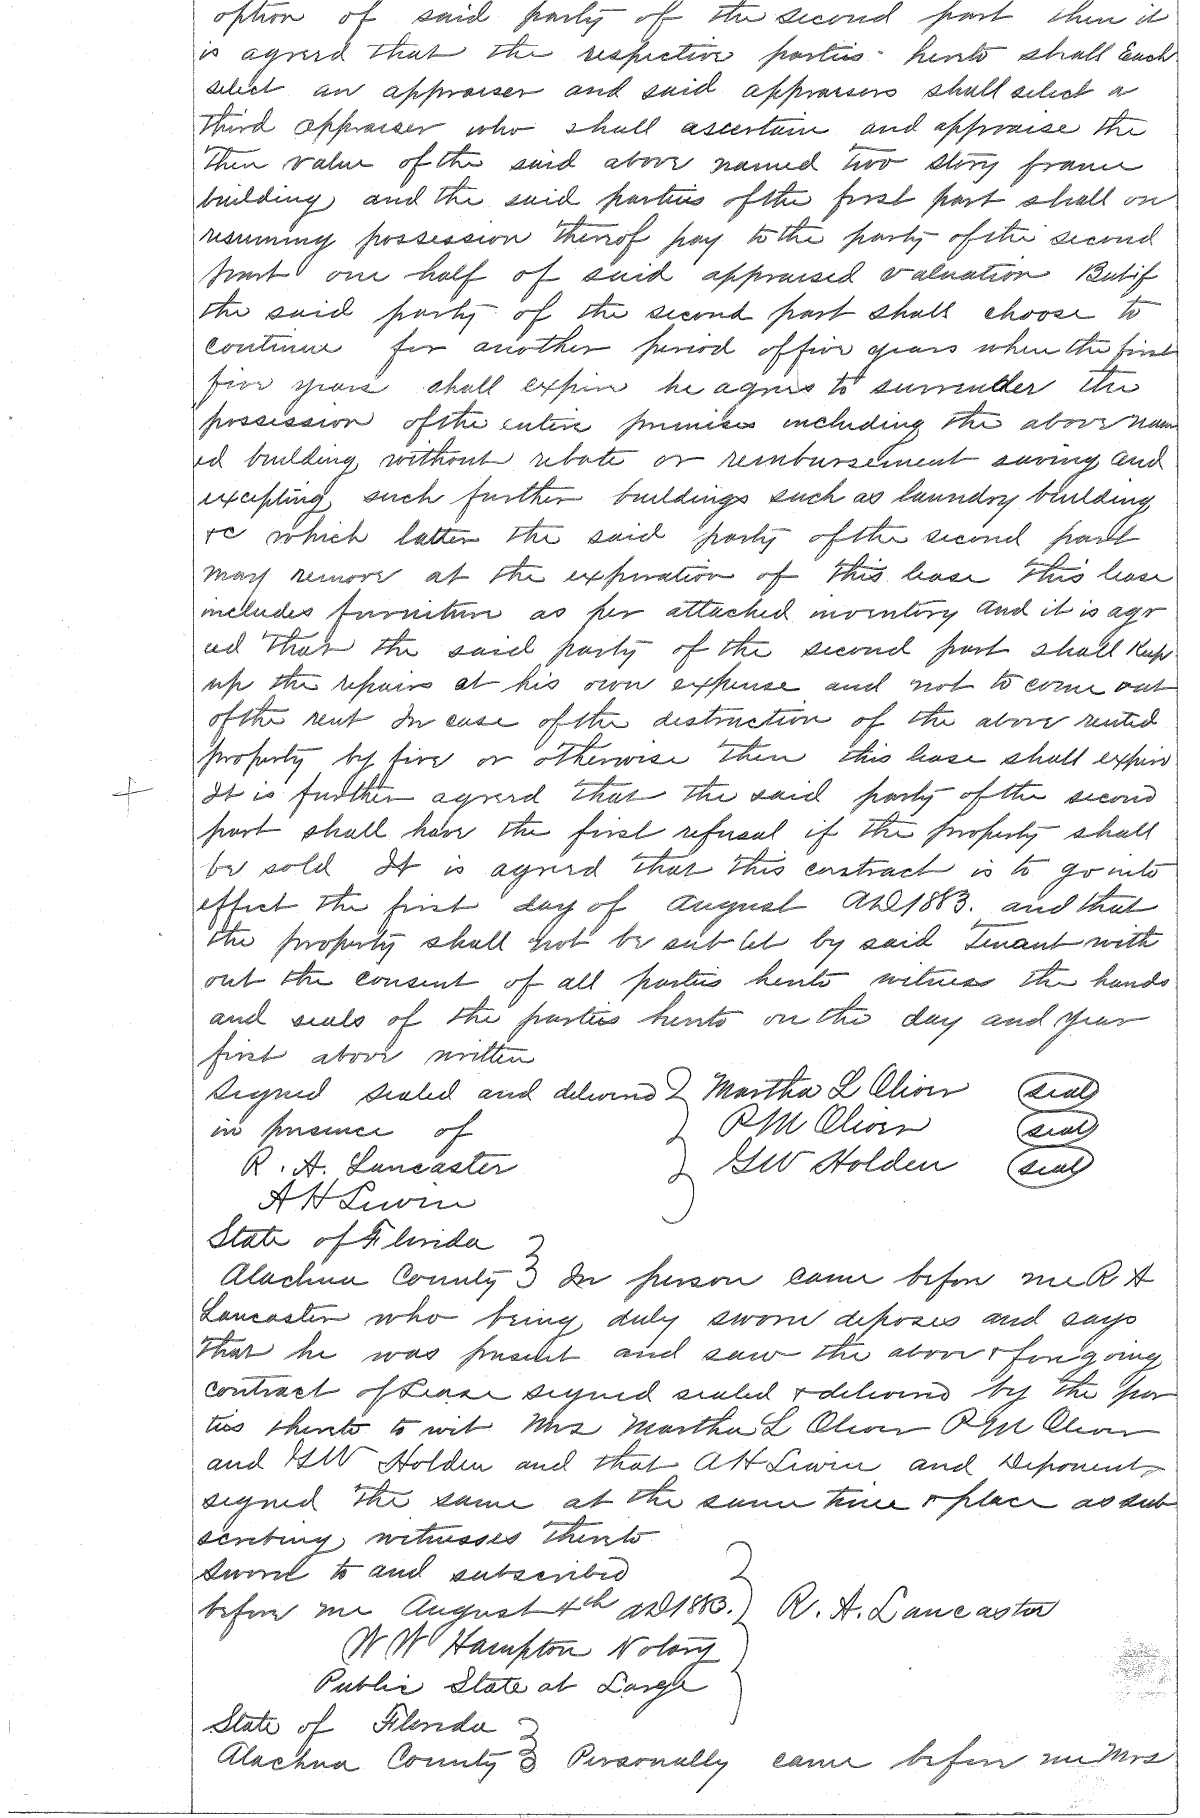 option of said party of the second part then it
is agreed that the respective parties hereto shall Each
select an appraiser and said appraisers shall select a
third appraiser who shall ascertain and appraise the
then value of the said above named two story frame
building and the said parties of the first part shall on
resuming possession thereof pay to the party of the second
part one half of said appraised valuation But if
the said party of the second part shall choose to
continue for another period of five years when the first
five years shall expire he agrees to surrender the
possession of the entire premises including the above nam
ed building without rebate or reimbursement saving and
excepting such further buildings such as laundry building
+c which latter the said party of the second part
may remove at the expiration of this lease This lease
includes furniture as per attached inventory and it is agr
eed that the said party of the second part shall Keep
up the repairs at his own expense and not to come out
of the rent In case of the destruction of the above rented
property by fire or otherwise then this lease shall expire
It is further agreed that the said party of the second
part shall have the first refusal if the property shall
be sold It is agreed that this contract is to go into
effect the first day of August AD 1883. and that
the property shall not be sub let by said Tenant with
out the consent of all parties hereto witness the hands
and seals of the parties hereto on the day and year
first above written
Signed sealed and delivered } Martha L Oliver (seal)
in presence of P M Oliver (seal)
R. A. Lancaster G W Holden (seal)
A H Lewin
State of Florida
Alachua County } In person came before me R A
Lancaster who being duly sworn deposes and says
that he was present and saw the above + foregoing
contract of Lease signed sealed + delivered by the par
ties thereto to wit Mrs Martha L Oliver P M Oliver
and G W Holden and that A H Lewin and Deponent
signed the same at the same time + place as sub
scribing witnesses thereto
Sworn to and subscribed
before me August 4th AD 1883. } R. A. Lancaster
W W Hampton Notary
Public State at Large
State of Florida
Alachua County } Personally came before me Mrs